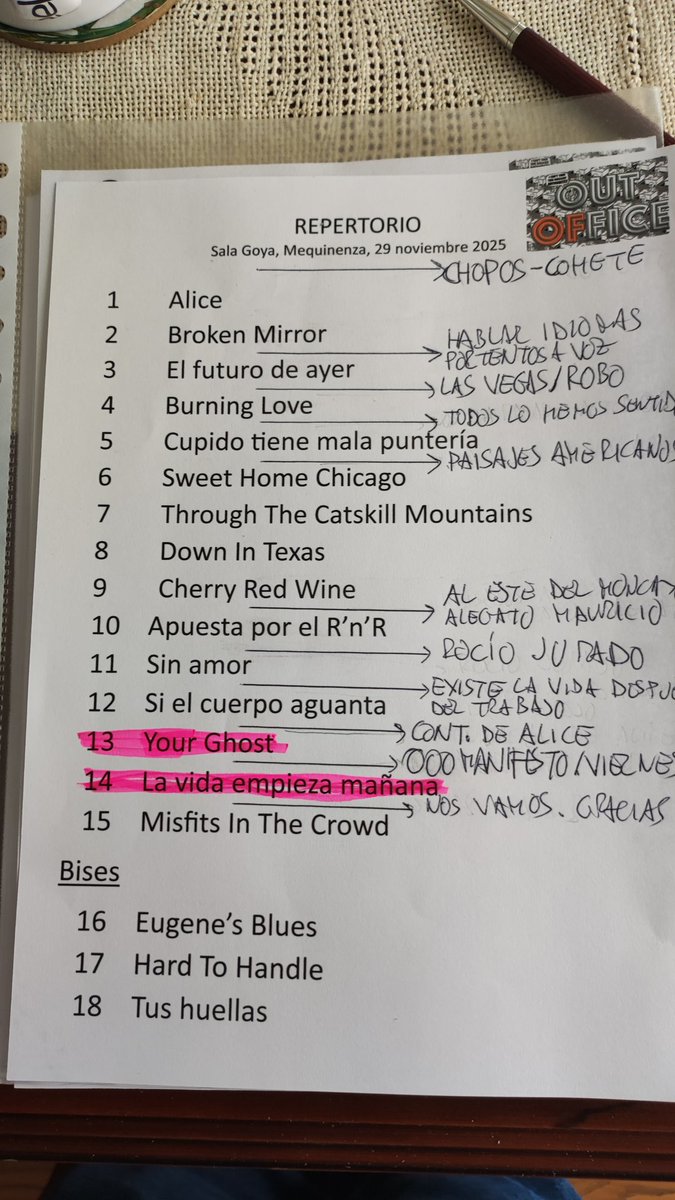 OUT
OFFICE
REPERTORIO
Sala Goya, Mequinenza, 29 noviembre 2025
CHOPOS-COHETE
1 Alice
2 Broken Mirror
HABLAR IDIOMAS
PORTENTOS A VOZ
3 El futuro de ayer
LAS VEGAS/ROBO
4 Burning Love
TODOS LO HEMOS SENTID
5 Cupido tiene mala puntería
PAISAJES AMERICANOS
6 Sweet Home Chicago
7 Through The Catskill Mountains
8 Down In Texas
9 Cherry Red Wine
AL ESTE DEL MONCA
ALEGATO MAURICIO
10 Apuesta por el R'n'R
ROCÍO JURADO
11 Sin amor
EXISTE LA VIDA DESPU
DEL TRABAJO
12 Si el cuerpo aguanta
CONT. DE ALICE
13 Your Ghost
OOO MANIFESTO/VIERNES
14 La vida empieza mañana
NOS VAMOS. GRACIAS
15 Misfits In The Crowd
Bises
16 Eugene's Blues
17 Hard To Handle
18 Tus huellas